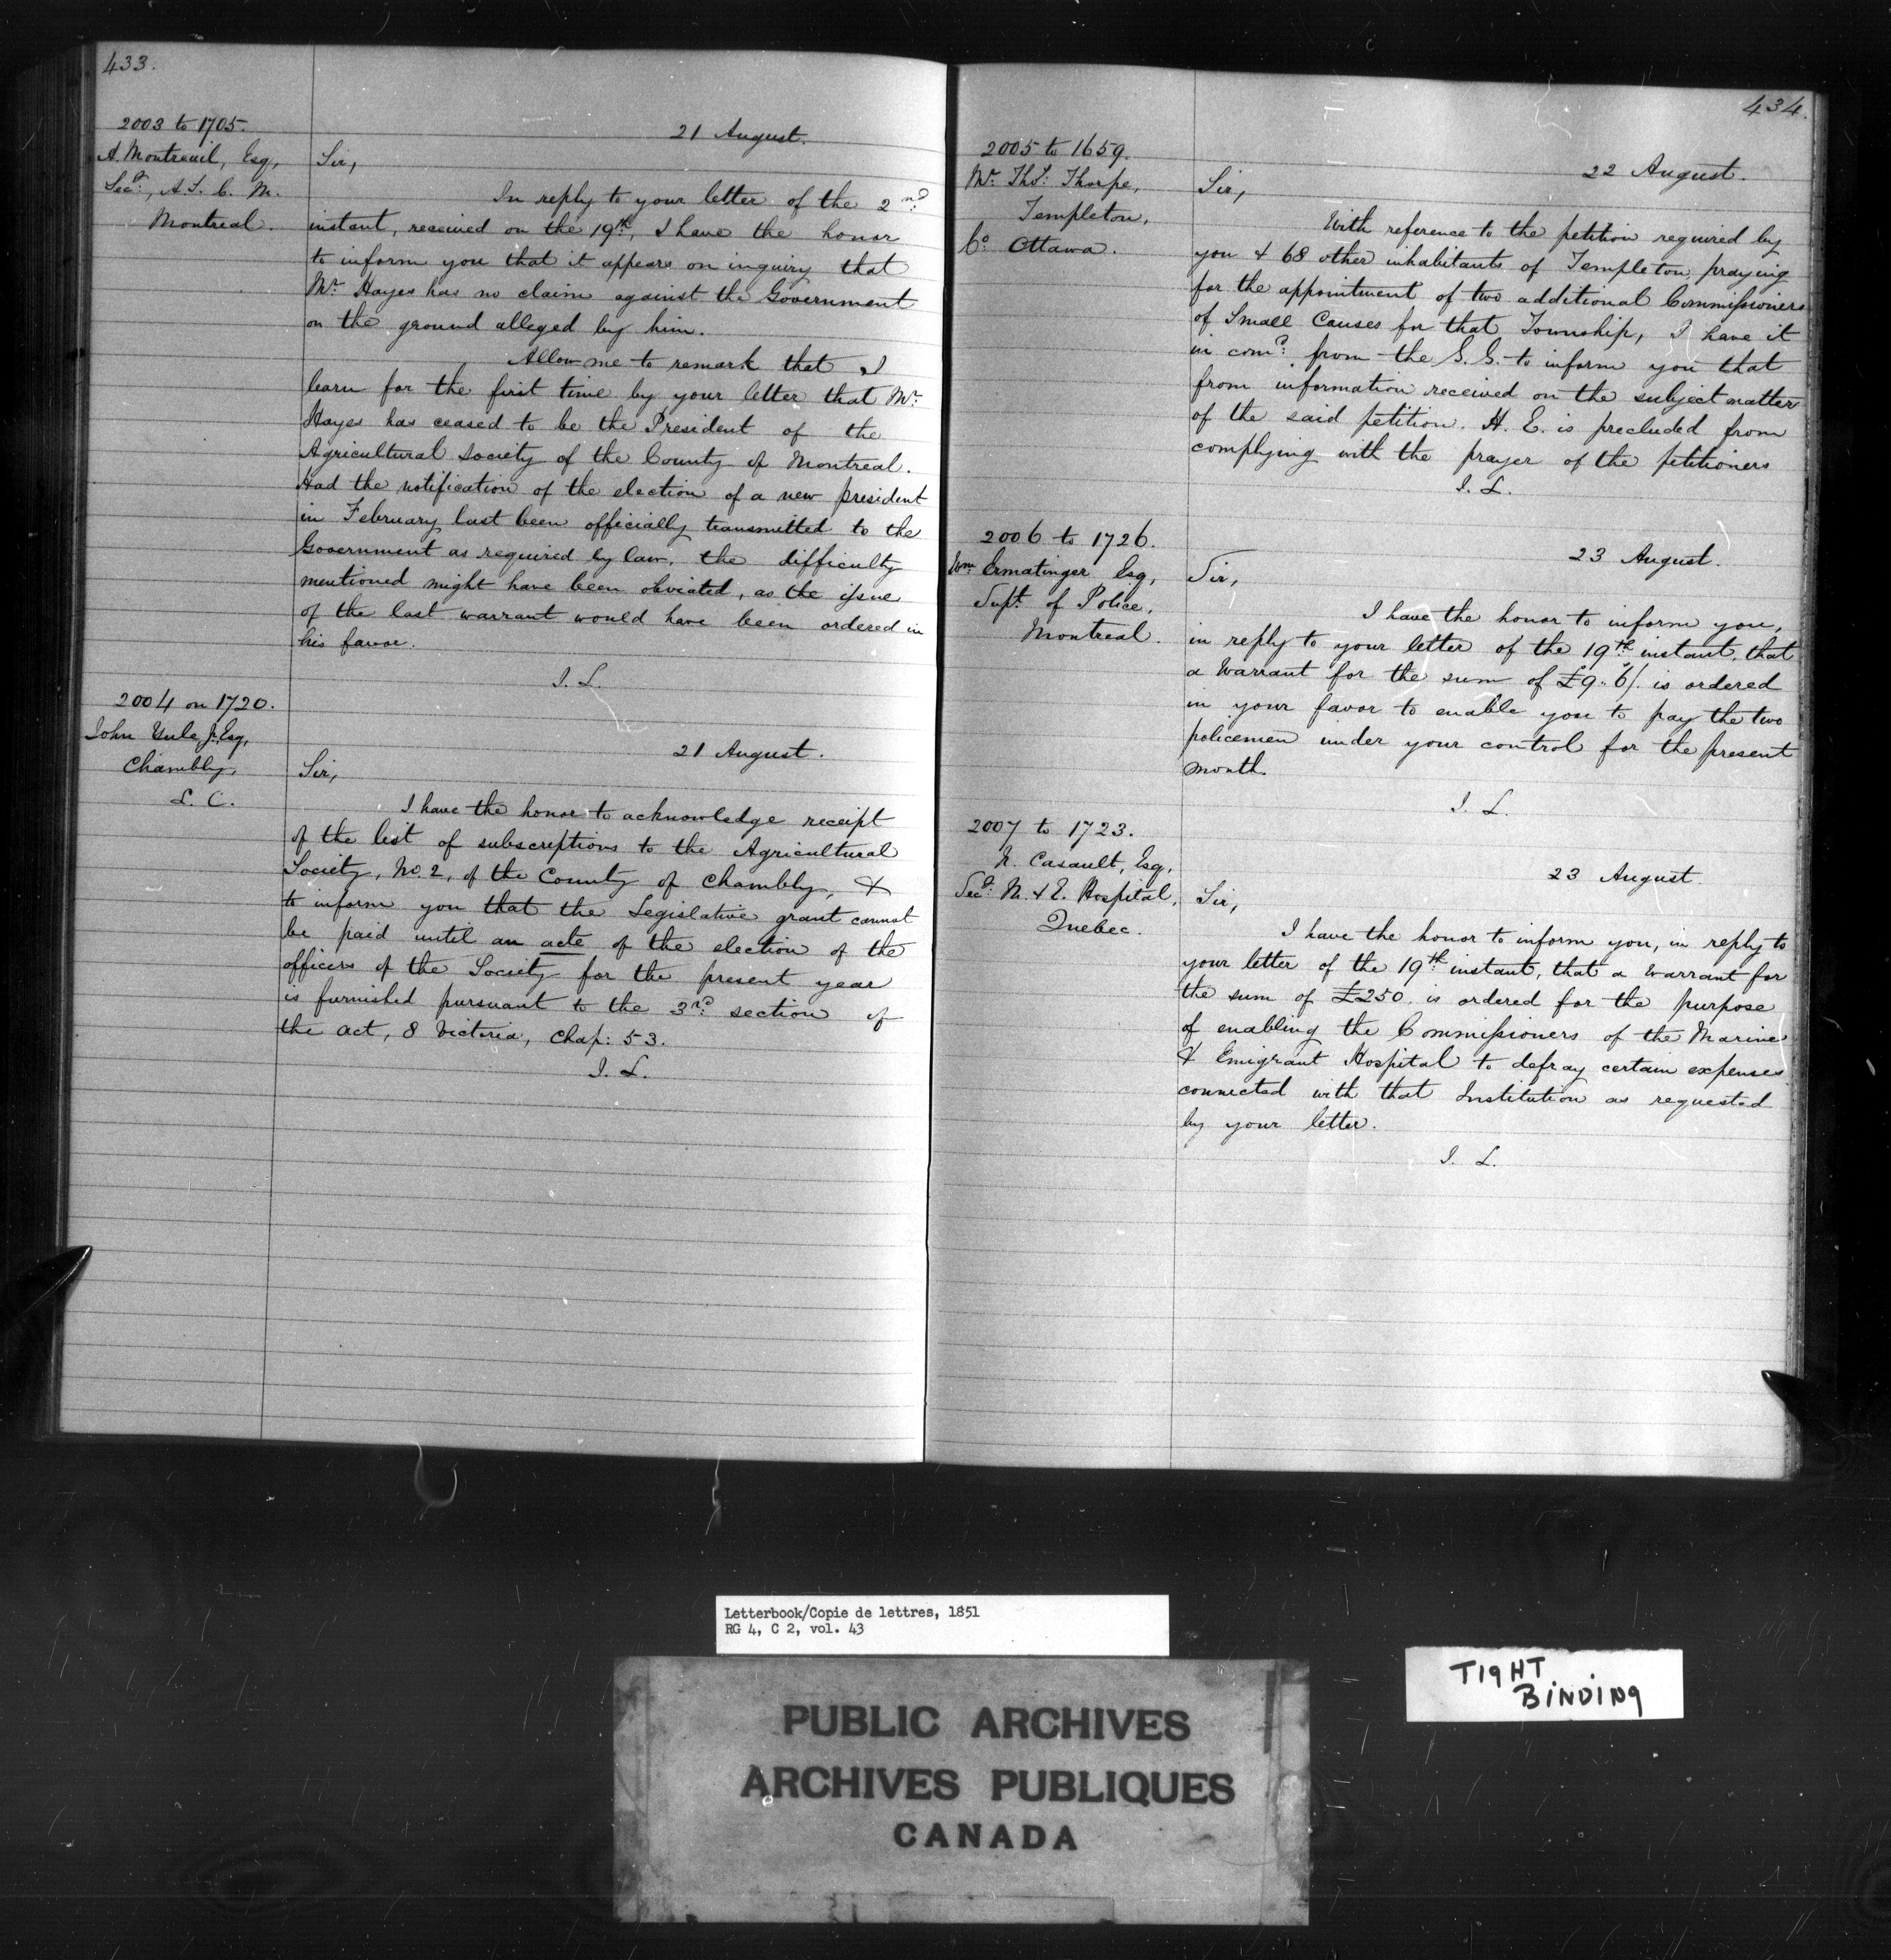 433.
2003 to 1705.
A. Montreuil, Esq,
Secy, A. S. C. M.
Montreal.
21 August.
Sir,
In reply to your letter of the 2nd
instant, received on the 19th, I have the honor
to inform you that it appears on inquiry that
Mr. Hayes has no claim against the Government
on the ground alleged by him.
Allow me to remark that I
learn for the first time by your letter that Mr.
Hayes has ceased to be the President of the
Agricultural Society of the County of Montreal.
Had the notification of the election of a new president
in February last been officially transmitted to the
Government as required by law, the difficulty
mentioned might have been obviated, as the issue
of the last warrant would have been ordered in
his favor.
I. L.
2004 on 1720.
John Yule, Jr, Esq,
Chambly,
L. C.
21 August.
Sir,
I have the honor to acknowledge receipt
of the list of subscriptions to the Agricultural
Society, No. 2, of the County of Chambly, &
to inform you that the Legislative grant cannot
be paid until an acte of the election of the
officers of the Society for the present year
is furnished pursuant to the 3rd section of
the act, 8 Victoria, Chap: 53.
I. L.
434.
2005 to 1659.
Mr. Thos: Thorpe,
Templeton,
Co: Ottawa.
22 August.
Sir,
With reference to the petition required by
you & 68 other inhabitants of Templeton, praying
for the appointment of two additional Commissioners
of Small Causes for that Township, I have it
in comd: from the G. G. to inform you that
from information received on the subject matter
of the said petition. H. E. is precluded from
complying with the prayer of the petitioners
I. L.
2006 to 1726.
Wm. Ermatinger Esq,
Supt. of Police,
Montreal.
23 August.
Sir,
I have the honor to inform you,
in reply to your letter of the 19th instant, that
a Warrant for the sum of £9. 6/. is ordered
in your favor to enable you to pay the two
policemen under your control for the present
month.
I. L.
2007 to 1723.
N. Casault, Esq,
Secy: M. & E. Hospital,
Quebec.
23 August.
Sir,
I have the honor to inform you, in reply to
your letter of the 19th instant, that a Warrant for
the sum of £250. is ordered for the purpose
of enabling the Commissioners of the Marine
& Emigrant Hospital to defray certain expenses
connected with that Institution as requested
by your letter.
I. L.
Letterbook/Copie de lettres, 1851
RG 4, C 2, vol. 43
TIGHT
BINDING
PUBLIC ARCHIVES
ARCHIVES PUBLIQUES
CANADA